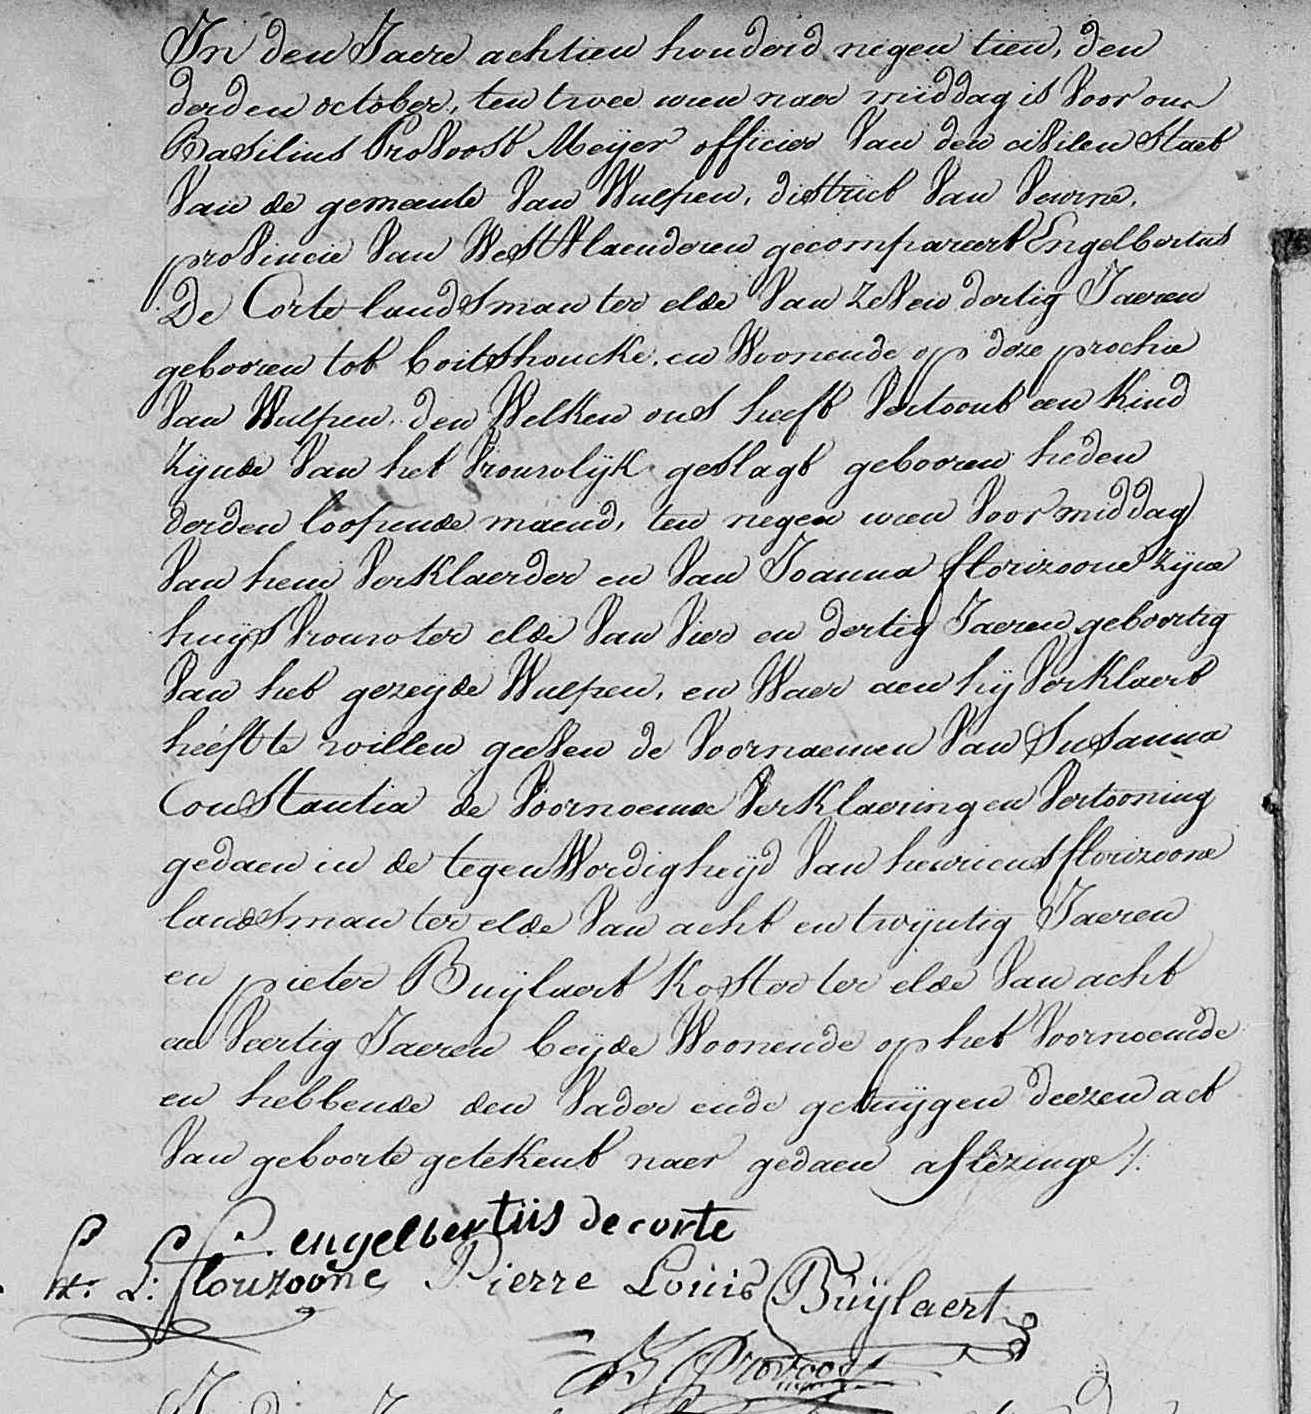 In den Jaere achtien honderd negen tien, den
derden october, ten twee uren naer middag is Voor ons
Basilius ProVoost Meijer officier Van den civilen Staet
Van de gemeente Van Wulpen, district Van Veurne,
proVincie Van WestVlaenderen gecompareert Engelbertus
De Corte landsman ter elde Van zeVen dertig Jaeren
gebooren tot boitshoucke, en Woonende op deze prochie
Van Wulpen, den Welken ons heeft Vertoont een kind
zijnde Van het Vrouwlijk geslagt gebooren heden
derden loopende maend, ten negen uren Voor middag
Van hem Verklaerder en Van Joanna florizoone zijne
huijsVrouw ter elde Van Vier en dertig Jaeren geboortig
Van het gezeijde Wulpen, en Waer aen hij Verklaert
heeft te willen geeVen de Voornaemen Van Susanna
Constantia de Voornoemde Verklaering en Vertooning
gedaen in de tegenWordigheijd Van henricus florizoone
landsman ter elde Van acht en twijntig Jaeren
en pieter Buijlaert koster ter elde Van acht
en Veertig Jaeren beijde Woonende op het Voornoemde
en hebbende den Vader ende getuijgen deezen act
Van geboorte getekent naer gedaen aflezinge /.
engelbertus de corte
L: florizoone Pierre Louis Buÿlaert
B Provoost